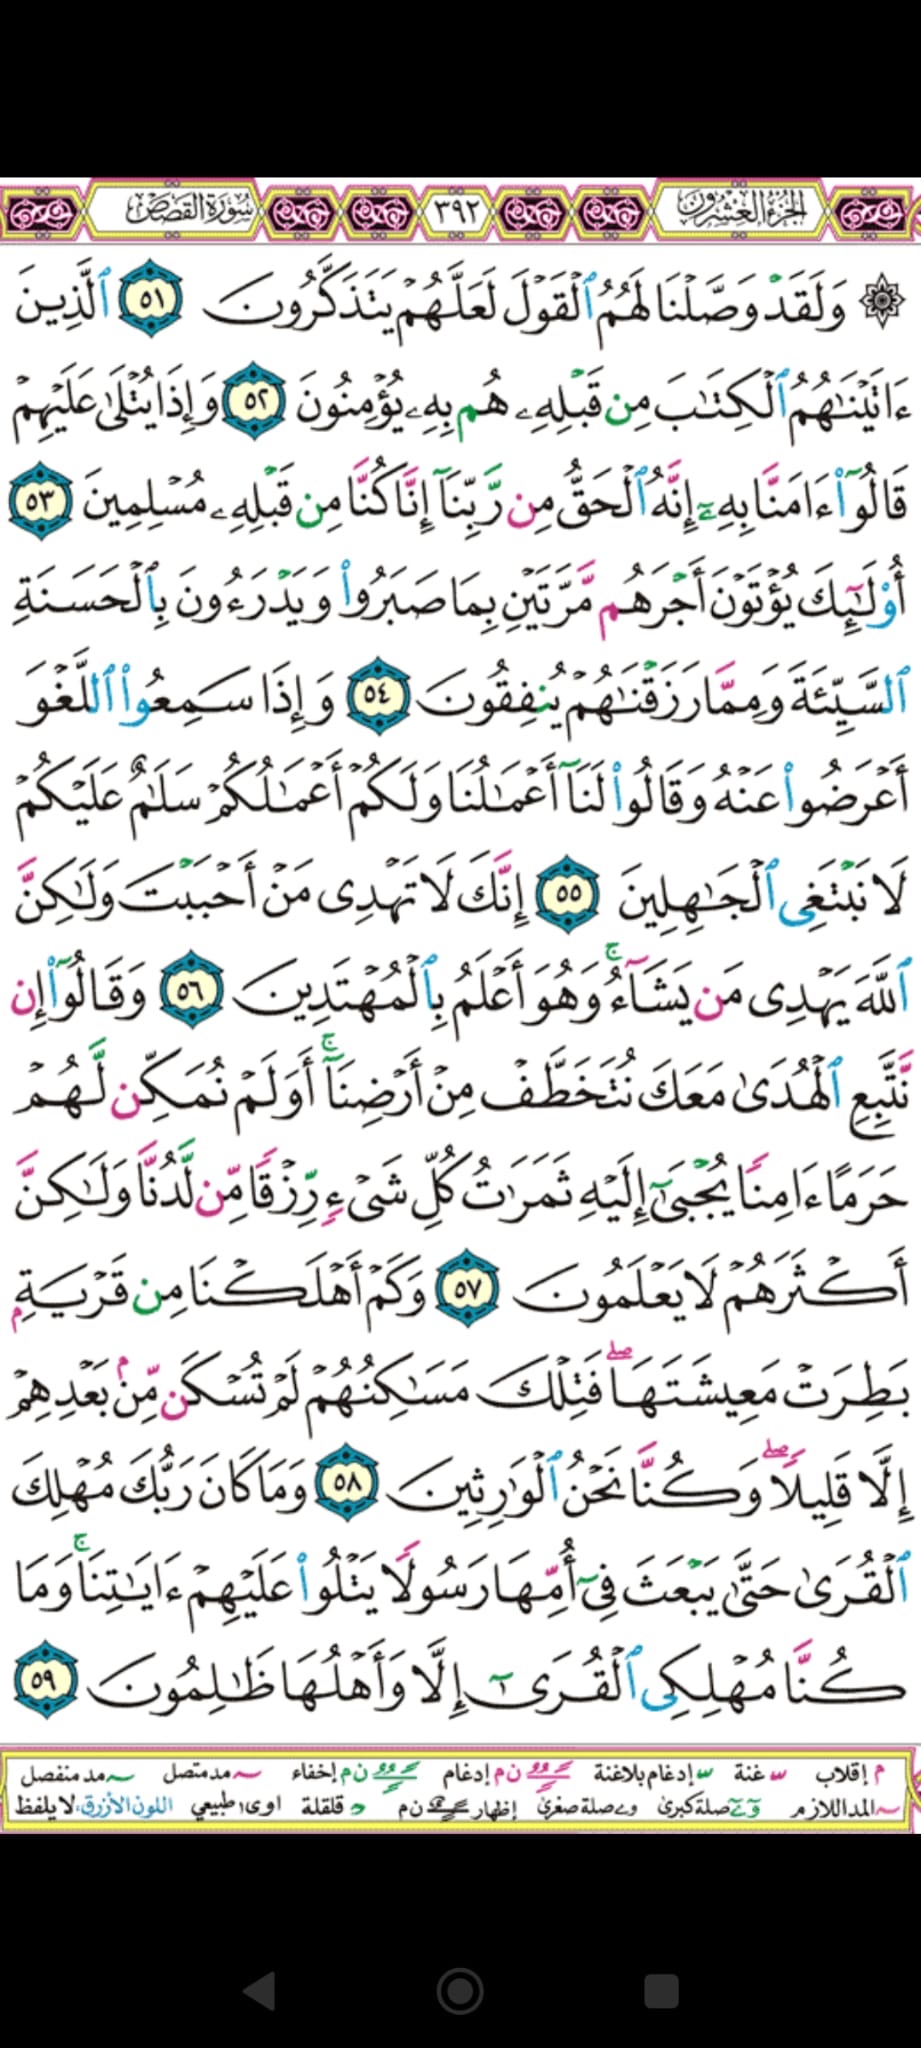 الجزء العشرون ٣٩٢ سورة القصص
۞ وَلَقَدْ وَصَّلْنَا لَهُمُ ٱلْقَوْلَ لَعَلَّهُمْ يَتَذَكَّرُونَ ٥١ ٱلَّذِينَ
ءَاتَيْنَٰهُمُ ٱلْكِتَٰبَ مِن قَبْلِهِۦ هُم بِهِۦ يُؤْمِنُونَ ٥٢ وَإِذَا يُتْلَىٰ عَلَيْهِمْ
قَالُوٓا۟ ءَامَنَّا بِهِۦٓ إِنَّهُ ٱلْحَقُّ مِن رَّبِّنَآ إِنَّا كُنَّا مِن قَبْلِهِۦ مُسْلِمِينَ ٥٣
أُو۟لَٰٓئِكَ يُؤْتَوْنَ أَجْرَهُم مَّرَّتَيْنِ بِمَا صَبَرُوا۟ وَيَدْرَءُونَ بِٱلْحَسَنَةِ
ٱلسَّيِّئَةَ وَمِمَّا رَزَقْنَٰهُمْ يُنفِقُونَ ٥٤ وَإِذَا سَمِعُوا۟ ٱللَّغْوَ
أَعْرَضُوا۟ عَنْهُ وَقَالُوا۟ لَنَآ أَعْمَٰلُنَا وَلَكُمْ أَعْمَٰلُكُمْ سَلَٰمٌ عَلَيْكُمْ
لَا نَبْتَغِى ٱلْجَٰهِلِينَ ٥٥ إِنَّكَ لَا تَهْدِى مَنْ أَحْبَبْتَ وَلَٰكِنَّ
ٱللَّهَ يَهْدِى مَن يَشَآءُ ۚ وَهُوَ أَعْلَمُ بِٱلْمُهْتَدِينَ ٥٦ وَقَالُوٓا۟ إِن
نَّتَّبِعِ ٱلْهُدَىٰ مَعَكَ نُتَخَطَّفْ مِنْ أَرْضِنَآ ۚ أَوَلَمْ نُمَكِّن لَّهُمْ
حَرَمًا ءَامِنًا يُجْبَىٰٓ إِلَيْهِ ثَمَرَٰتُ كُلِّ شَىْءٍ رِّزْقًا مِّن لَّدُنَّا وَلَٰكِنَّ
أَكْثَرَهُمْ لَا يَعْلَمُونَ ٥٧ وَكَمْ أَهْلَكْنَا مِن قَرْيَةٍۭ
بَطِرَتْ مَعِيشَتَهَا ۖ فَتِلْكَ مَسَٰكِنُهُمْ لَمْ تُسْكَن مِّنۢ بَعْدِهِمْ
إِلَّا قَلِيلًا ۖ وَكُنَّا نَحْنُ ٱلْوَٰرِثِينَ ٥٨ وَمَا كَانَ رَبُّكَ مُهْلِكَ
ٱلْقُرَىٰ حَتَّىٰ يَبْعَثَ فِىٓ أُمِّهَا رَسُولًا يَتْلُوا۟ عَلَيْهِمْ ءَايَٰتِنَا ۚ وَمَا
كُنَّا مُهْلِكِى ٱلْقُرَىٰٓ إِلَّا وَأَهْلُهَا ظَٰلِمُونَ ٥٩
م إقلاب غنة إدغام بلاغنة ن م إدغام ن م إخفاء مد متصل مد منفصل
المد اللازم صلة كبرى صلة صغرى إظهار ن م قلقلة اوى طبيعي اللون الأزرق: لا يلفظ